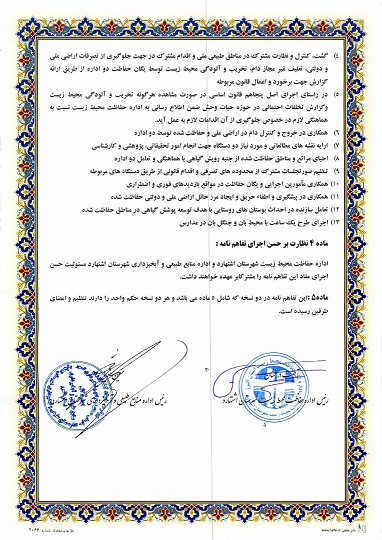 ۴) گشت، کنترل و نظارت مشترک در مناطق طبیعی ملی و اقدام مشترک در جهت جلوگیری از تصرفات اراضی ملی
و دولتی، تعلیف غیر مجاز دام، تخریب و آلودگی محیط زیست توسط یگان حفاظت دو اداره از طریق ارائه
گزارش جهت برخورد و اعمال قانون مربوطه
۵) در راستای اجرای اصل پنجاهم قانون اساسی در صورت مشاهده هرگونه تخریب و آلودگی محیط زیست
وگزارش تخلفات احتمالی در حوزه حیات وحش ضمن اطلاع رسانی به اداره حفاظت محیط زیست نسبت به
هماهنگی لازم در خصوص جلوگیری از آن اقدامات لازم به عمل آید.
۶) همکاری در خروج و کنترل دام در اراضی ملی و حفاظت شده توسط دو اداره
۷) ارایه نقشه های مطالعاتی و مورد نیاز دو دستگاه جهت انجام امور تحقیقاتی، پژوهشی و کارشناسی
۸) احیای مراتع و مناطق حفاظت شده از جنبه رویش گیاهی با هماهنگی و تعامل دو اداره
۹) تنظیم صورتجلسات مشترک از محدوده های تصرفی و اقدام قانونی از طریق دستگاه های مربوطه
۱۰) همکاری مأمورین اجرایی و یگان حفاظت در مواقع بازدیدهای فوری و اضطراری
۱۱) همکاری در پیشگیری و اطفاء حریق و ایجاد مرز حائل اراضی ملی و دولتی حفاظت شده
۱۲) تعامل سازنده در احداث بوستان های روستایی با هدف توسعه پوشش گیاهی در مناطق حفاظت شده
۱۳) اجرای طرح یک ساعت با محیط بان و جنگل بان در مدارس
ماده ۴ نظارت بر حسن اجرای تفاهم نامه :
اداره حفاظت محیط زیست شهرستان اشتهارد و اداره منابع طبیعی و آبخیزداری شهرستان اشتهارد مسئولیت حسن
اجرای مفاد این تفاهم نامه را مشترکابر عهده خواهند داشت.
ماده۵ :این تفاهم نامه در دو نسخه که شامل ۵ ماده می باشد و هر دو نسخه حکم واحد را دارند تنظیم و امضای
طرفین رسیده است.
رئیس اداره حفاظت محیط زیست شهرستان اشتهارد
رئیس اداره منابع طبیعی و آبخیزداری شهرستان اشتهارد